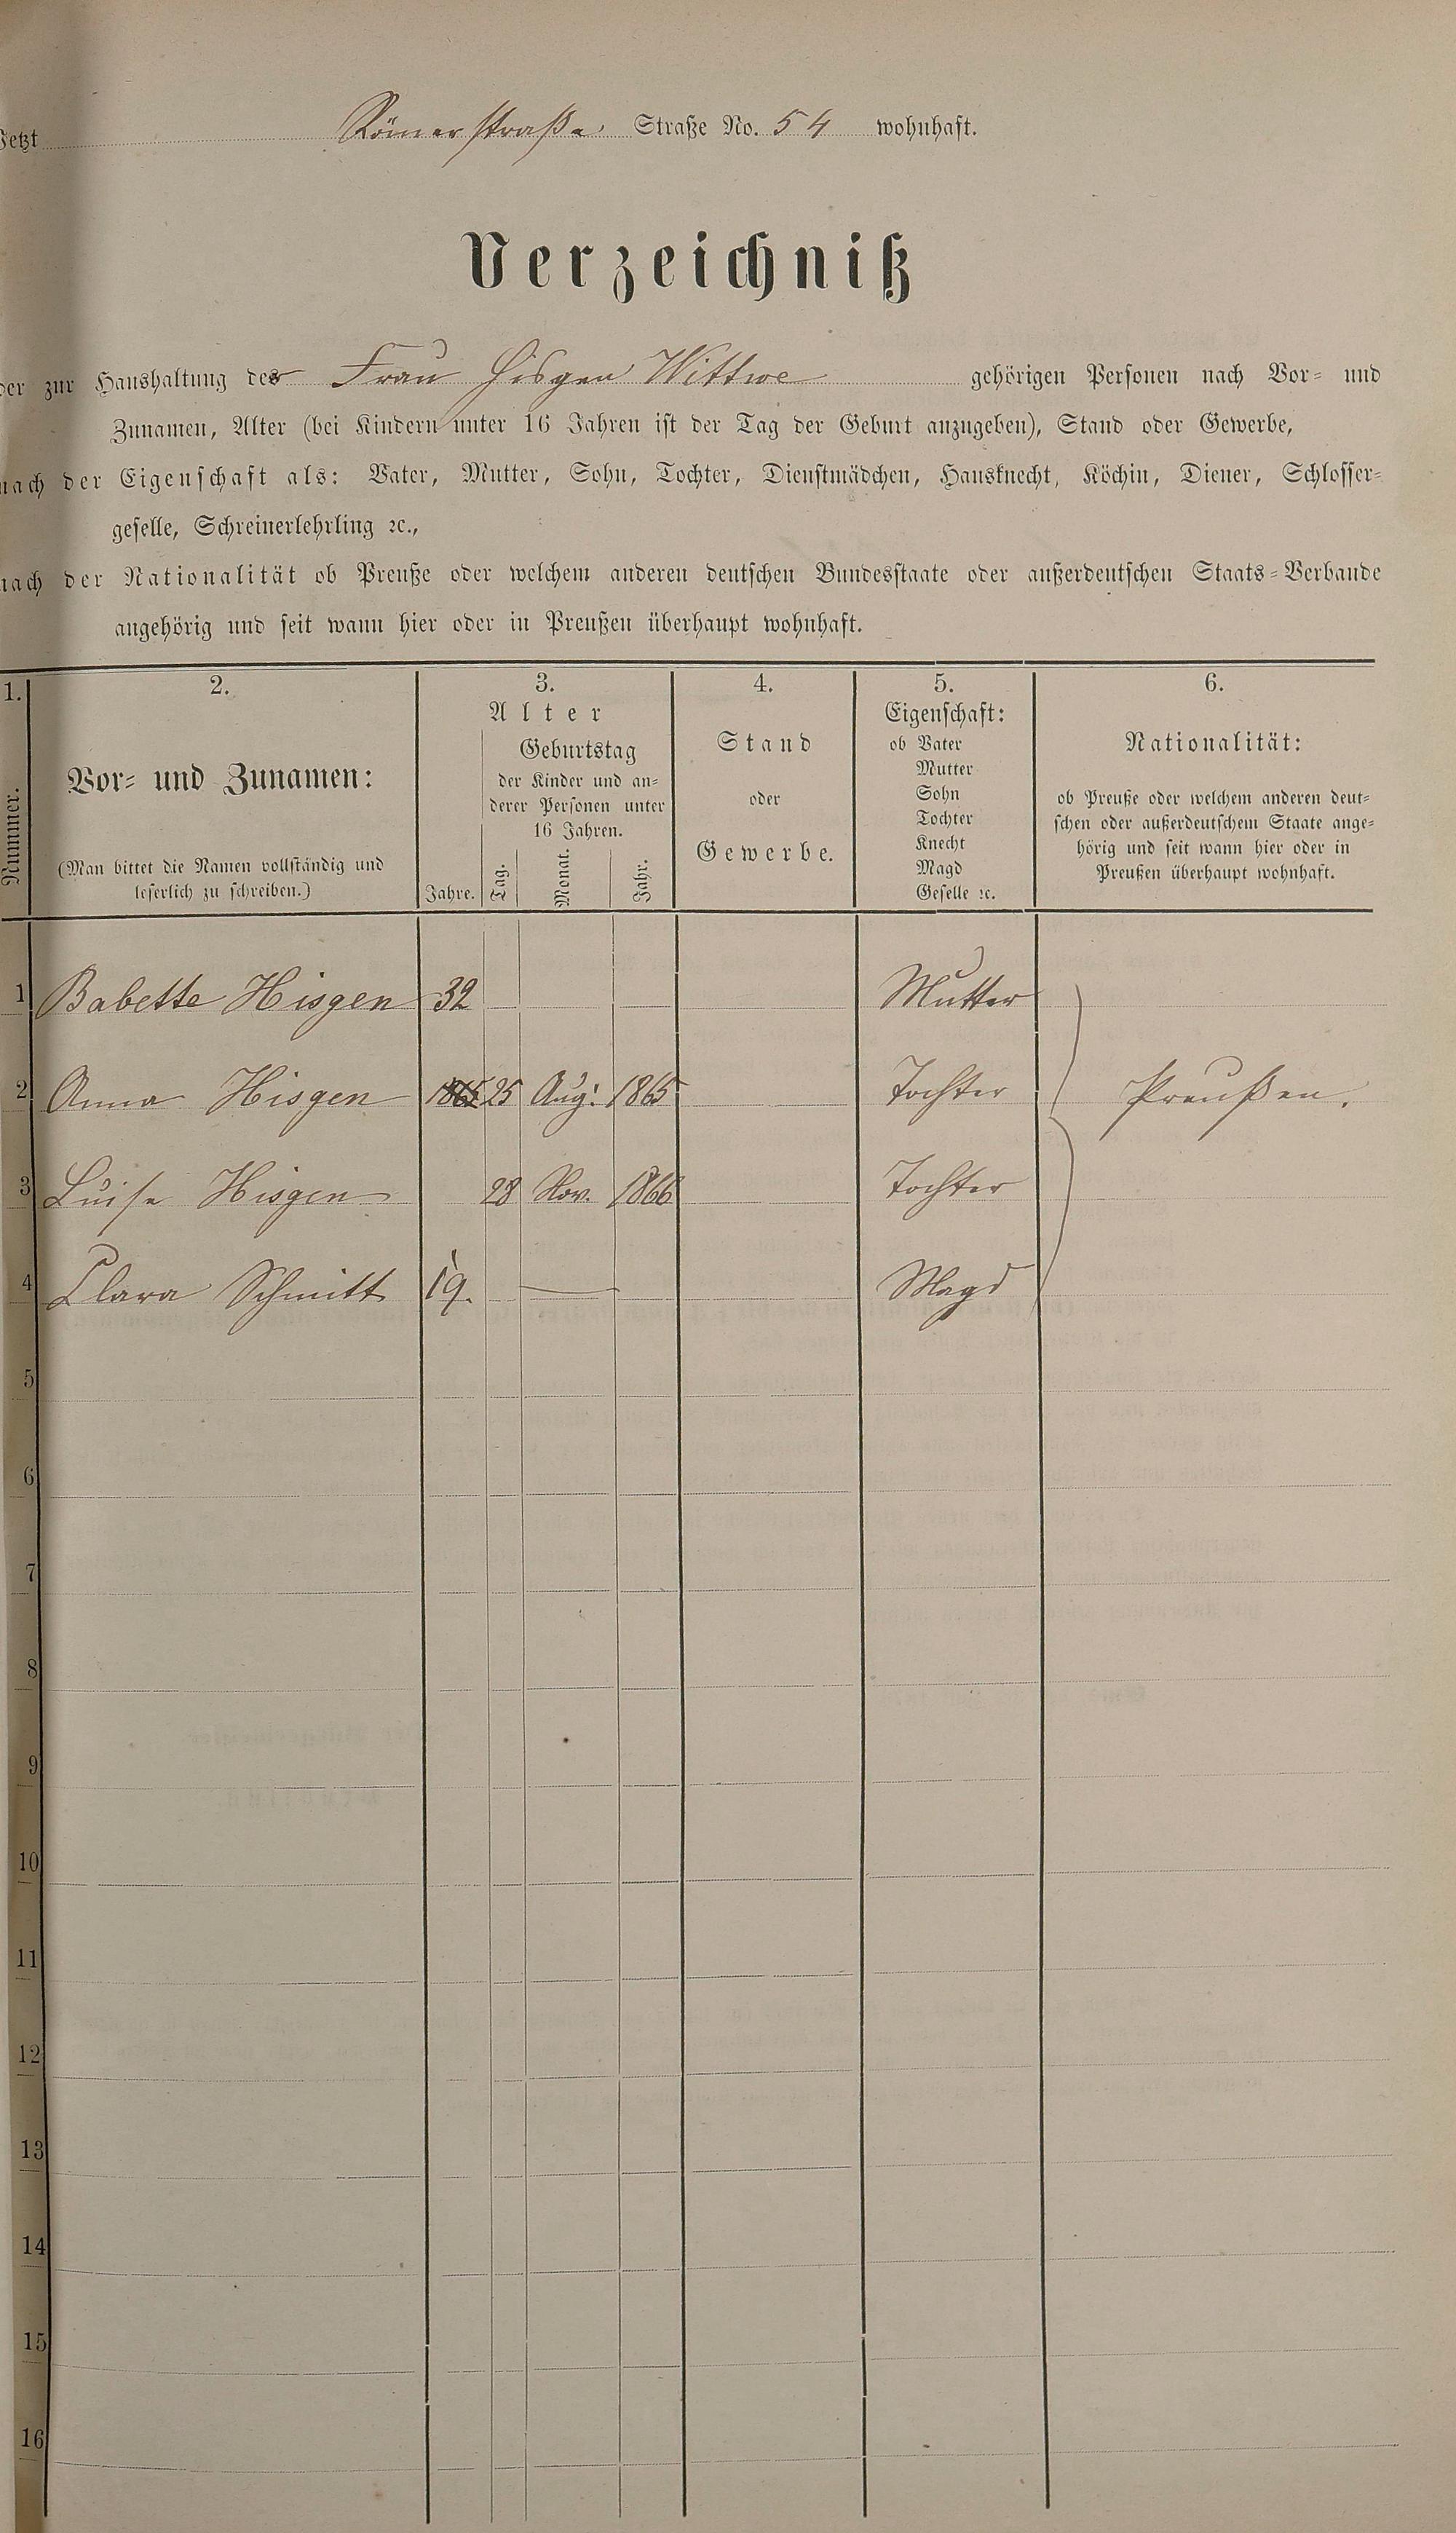 Jetzt Römerstraße Straße No. 54 wohnhaft.
Verzeichniß
der zur Haushaltung der Frau Hisgen Wittwe gehörigen Personen nach Vor- und
Zunamen, Alter (bei Kindern unter 16 Jahren ist der Tag der Geburt anzugeben), Stand oder Gewerbe,
nach der Eigenschaft als: Vater, Mutter, Sohn, Tochter, Dienstmädchen, Hausknecht, Köchin, Diener, Schlosser-
geselle, Schreinerlehrling ꝛc.,
nach der Nationalität ob Preuße oder welchem anderen deutschen Bundesstaate oder außerdeutschen Staats-Verbande
angehörig und seit wann hier oder in Preußen überhaupt wohnhaft.
1. 2. 3. 4. 5. 6.
Nummer.
Vor- und Zunamen:
(Man bittet die Namen vollständig und
leserlich zu schreiben.)
Alter
Jahre.
Geburtstag
der Kinder und an-
derer Personen unter
16 Jahren.
Tag. Monat. Jahr.
Stand
oder
Gewerbe.
Eigenschaft:
ob Vater
Mutter
Sohn
Tochter
Knecht
Magd
Geselle ꝛc.
Nationalität:
ob Preuße oder welchem anderen deut-
schen oder außerdeutschem Staate ange-
hörig und seit wann hier oder in
Preußen überhaupt wohnhaft.
1 Babette Hisgen 32 Mutter
2 Anna Hisgen 1865 25 Aug. 1865 Tochter Preußen.
3 Luise Hisgen 28 Nov. 1866 Tochter
4 Clara Schmitt 19. Magd
5
6
7
8
9
10
11
12
13
14
15
16